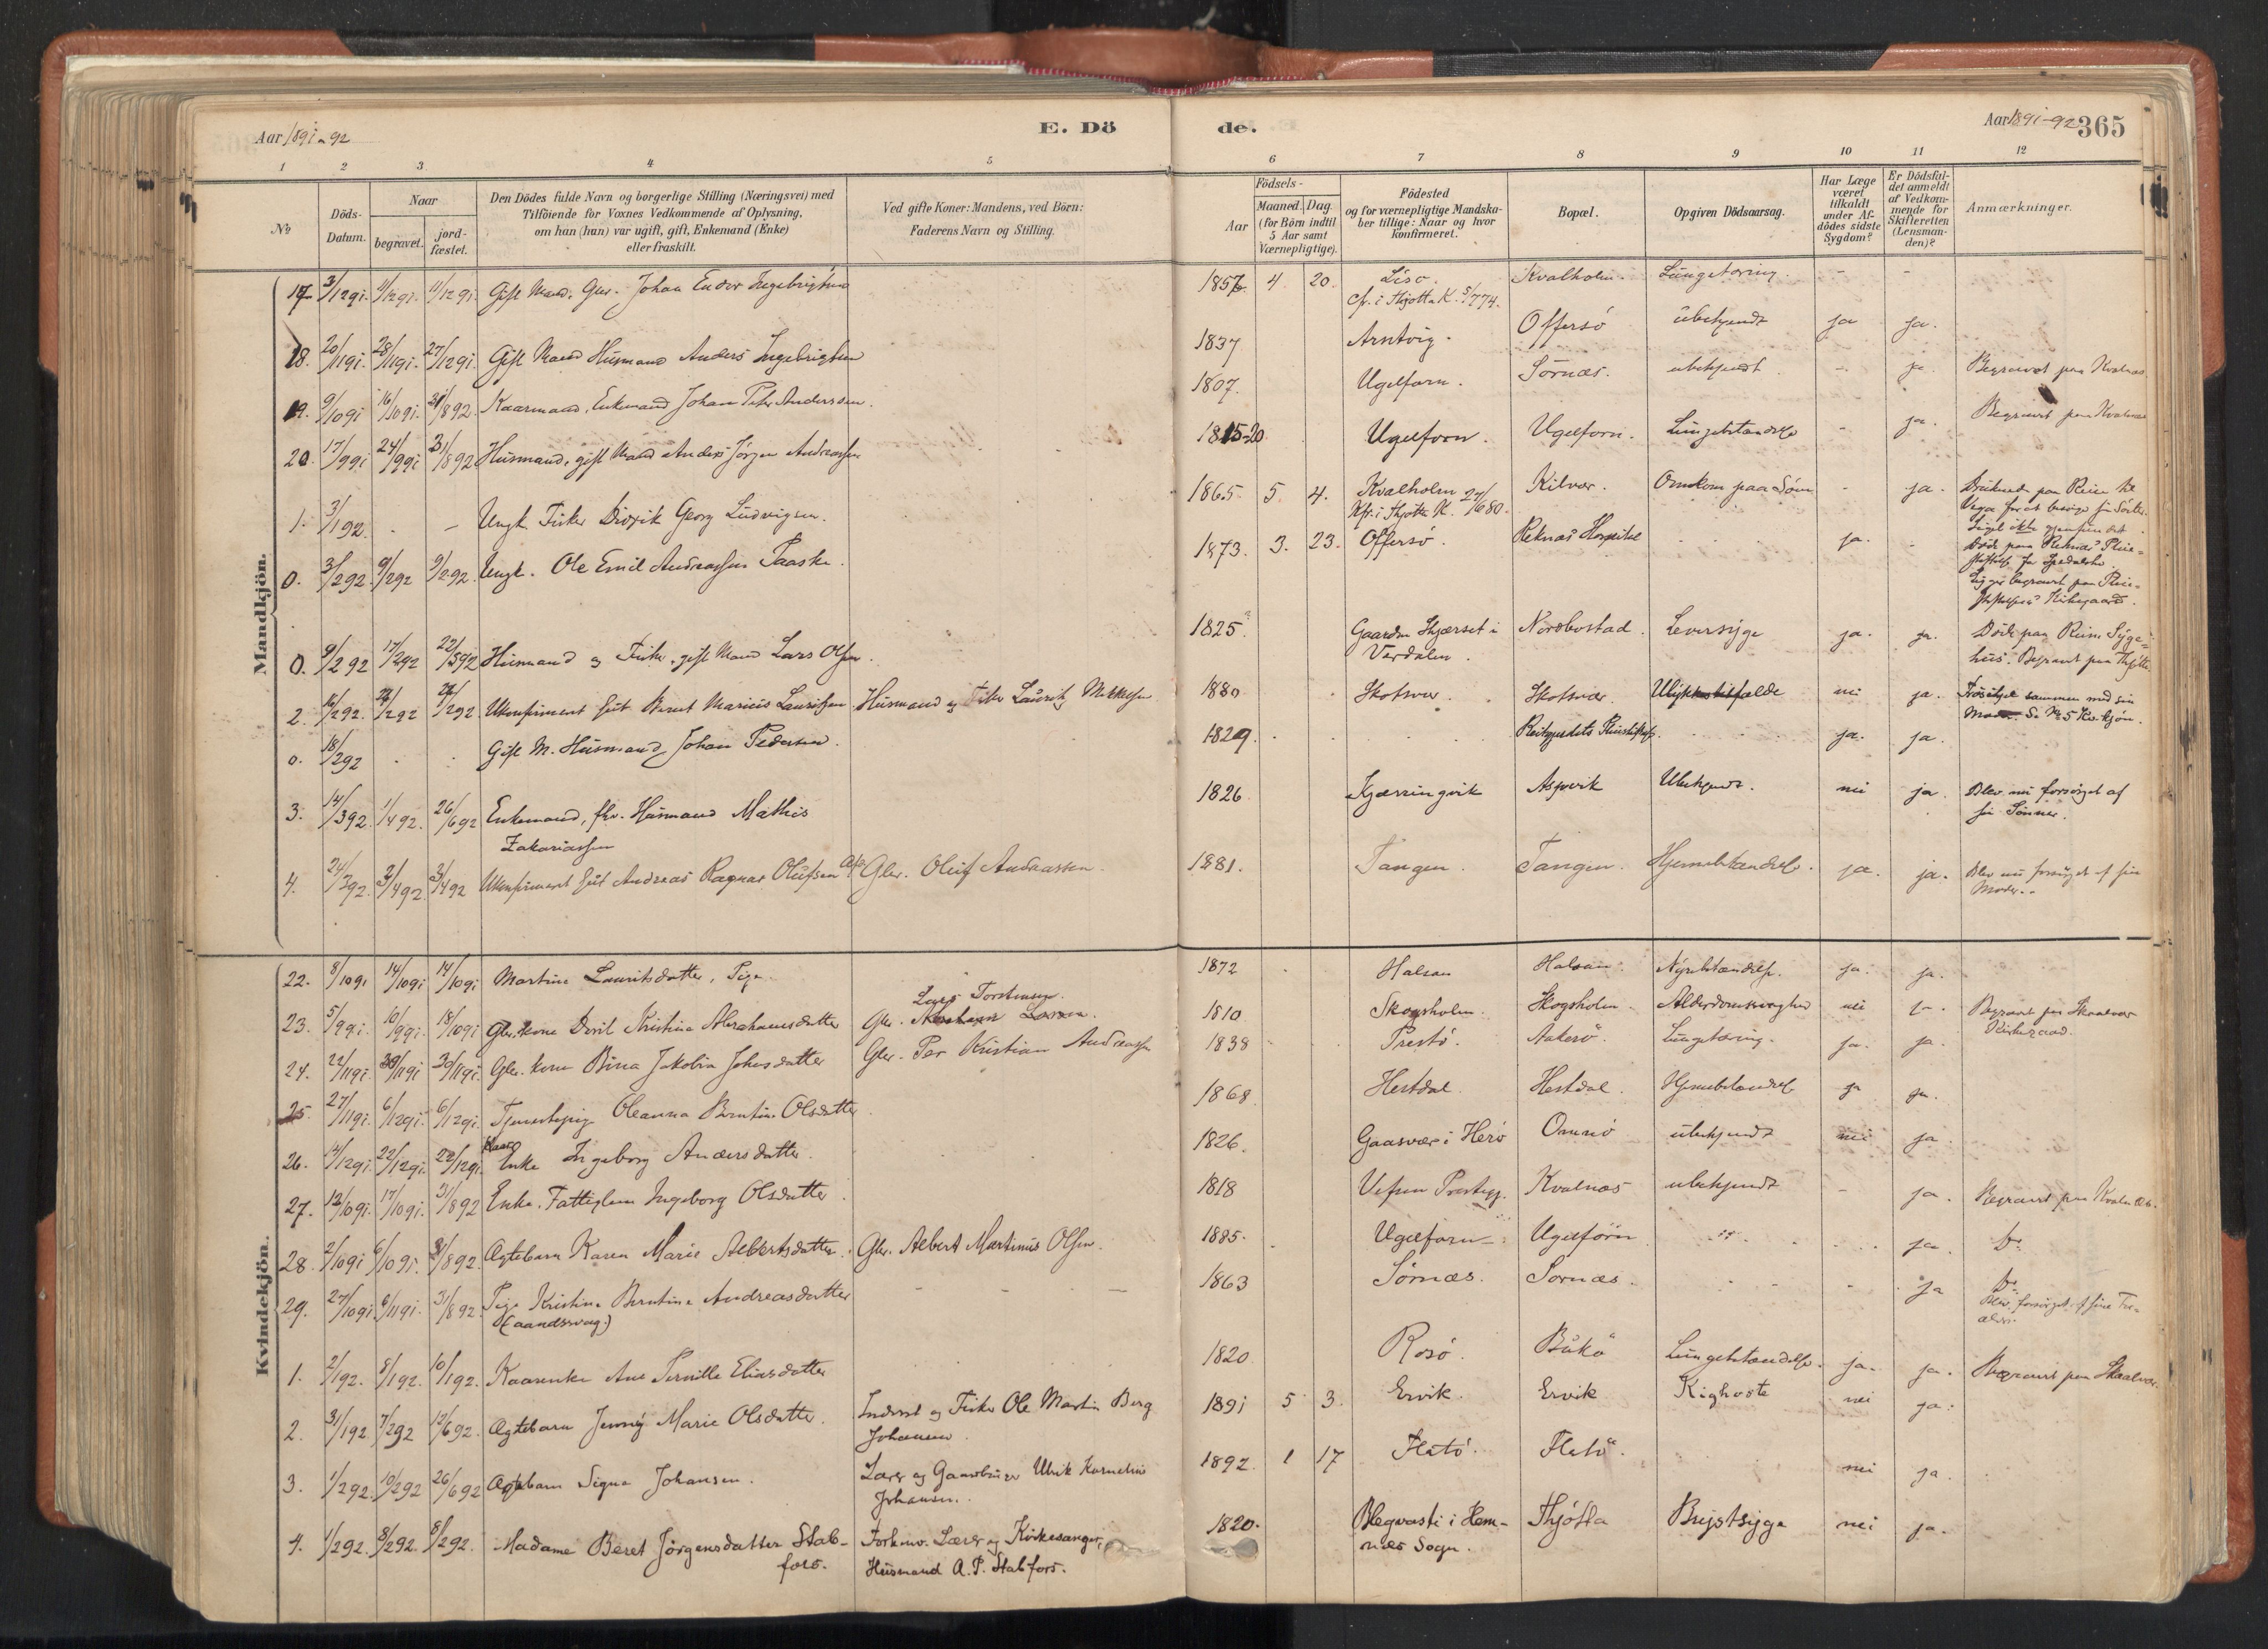 Aar 1891-92
E. Dö
de.
Aar 1891-92 365
1 2 3 4 5 6 7 8 9 10 11 12
No
Döds-Datum.
Naar
begravet.
jord-fæstet.
Den Dödes fulde Navn og borgerlige Stilling (Næringsvei) med
Tilföiende for Voxnes Vedkommende af Oplysning,
om han (hun) var ugift, gift, Enkemand (Enke)
eller fraskilt.
Ved gifte Koner: Mandens, ved Börn:
Faderens Navn og Stilling.
Födsels-
Aar
Maaned. Dag
(for Börn indtil
5 Aar samt
Værnepligtige).
Födested
og for værnepligtige Mandska-
ber tillige: Naar og hvor
konfirmeret.
Bopæl.
Opgiven Dödsaarsag.
Har Læge
været
tilkaldt
under Af-
dödes sidste
Sygdom?
Er Dödsfal-
det anmeldt
af Vedkom-
mende for
Skifteretten
(Lensman-
den)?
Anmærkninger.
Mandkjön.
17. 3/1291. 11/1291. 11/1291. Gift Mand, Gaar. Johan Ingebrigtsen 1857 4 20 Lisø Kvalholm. Lungetæring. - -
cfr. i Thjøtta K. 5/774.
18. 20/1191. 28/1191. 27/1291. Gift Mand Husmand Anders Ingebrigtsen 1837 Arntvig. Offersö ubekjendt ja ja.
19. 9/1091 16/1091. 31/892. Kaarmand, Enkemand Johan Peter Anderssen. 1807. Ugelforn. Sörnæs. ubekjendt - ja. Begravet paa Kvalnæs
20. 17/991 24/991 31/892 Husmand, gift Mand Anders Jörgen Andreassen 1815-20 Ugelforn. Ugelforn. Lungebetændelse - ja. Begravet paa Kvalnæs
1. 3/192. - - Ungk. Fisker Didrik Georg Ludvigsen. 1865. 5. 4. Kvalholm Kilvær. Omkom paa Söen - ja. Druknede paa Reise til
Kfr. i Thjøtta K. 27/680. Vega for at besöge sin Söster.
Liget ikke gjenfundet.
0. 3/292. 9/292 9/292. Ungk. Ole Emil Andreassen Paaske. 1873. 3. 23. Offersö. Reknæs Hospital ja. - Döde paa Reknæs Pleie-
stiftelse for Spedalske.
Ligger begravet paa Pleie-
stiftelsens Kirkegaard.
0. 9/292 17/292 22/592 Husmand og Fisker, gift Mand Lars Olsen. 1825. Gaarden Skjærset i Nordbostad. Leversyge ja. ja. Döde paa Reins Syge-
Verdalen. hus. Begravet paa Thjøtta
2. 16/292. 27/292 27/292 Ukonfirmeret Gut Bernt Marius Lauritsen Husmand og Fisker Laurits Mikkelsen 1880 Skotsvær. Skotsvær. Ulykkestilfælde nei ja. Frösihjel sammen med sin
Moder. Se No 5 Kv.kjön.
0. 18/292 . . Gift M. Husmand Johan Pedersen. 1829. Reitgjerdets Pleiestiftelse. ja. ja.
3. 14/392. 1/492. 26/692 Enkemand, fhv. Husmand Mathis 1826 Kjærringvik Aspvik Ubekjendt. nei ja. Blev nu forsörget af
Zakariassen sin Sönner.
4. 24/392. 3/492. 3/492 Ukonfirmeret Gut Andreas Ragnar Olufsen Gbr. Oluf Andreassen. 1881. Tangen. Tangen. Hjernebetændelse. ja. ja. Blev nu forsörget af sin
Moder.
Kvindekjön.
22. 8/1091 14/1091 14/1091 Martine Lauritsdatter, Pige. 1872 Halsan Halsan. Nyrebetændelse. ja. ja.
Lars Torstensen.
23. 5/991. 10/991. 18/1091 Gbr.kone Doril Kristine Abrahamsdatter Gbr. 1810 Skogsholm. Skogsholm. Alderdomssvaghed nei ja. Begravet paa Skaalvær
Kirkegaard.
24. 22/1191. 30/1191 30/1191. Gbr. kone Bina Jakobia Johnsdatter Gbr. Per Kristian Andreassen 1838 Prestö. Aakerö. Lungetæring. ja. ja.
25. 27/1191. 6/1291. 6/1291. Tjenestepige Oleanna Berntine Olsdatter 1868. Hestdal. Hestdal. Hjernebetændelse ja ja.
26. 14/1291. 22/1291. 22/1291. Kaar Enke Ingeborg Andersdatter. 1826. Gaasvær i Herö Omnö ubekjendt nei ja
27. 12/1091. 17/1091. 31/892 Enke. Fattiglem Ingeborg Olsdatter 1818 Vefsen Prestegj. Kvalnæs ubekjendt - ja. Begravet paa Kvalnæs.
28. 2/1091 6/1091. 31/892. Ægtebarn Karen Marie Albertsdatter. Gbr. Albert Martinus Olsen. 1885. Ugelforn Ugelforn " ja. Do
29. 27/1091. 6/1191. 31/892. Pige Kristine Berntine Andreasdatter - - - 1863 Sörnæs. Sörnæs. - ja Do
(aandssvag.) Blev forsörget af sine For-
ældre.
1. 2/192. 8/192. 10/192. Kaarenke Ane Pernille Eliasdatter 1820 Rosö. Bukö Lungebetændelse. ja. ja. Begravet paa Skaalvær.
2. 31/192 7/292 12/692. Ægtebarn Jenny Marie Olsdatter. Inderst og Fisker Ole Martin Berg 1891 5 3. Ervik. Ervik Kighoste nei ja.
Johansen.
3. 1/292. 10/292 26/692 Ægtebarn Signe Johansen. Lærer og Gaardbruger Ulrik Kornelius 1892. 1 17 Flatö. Flatö. nei ja.
Johansen.
4. 1/292. 8/292. 8/292. Madame Beret Jörgensdatter Stab- Forhenv. Lærer og Kirkesanger, 1820. Blegvasli i Hem- Thjötta Brystsyge nei ja.
fors. Husmand A. P. Stabfors. næs Sogn.